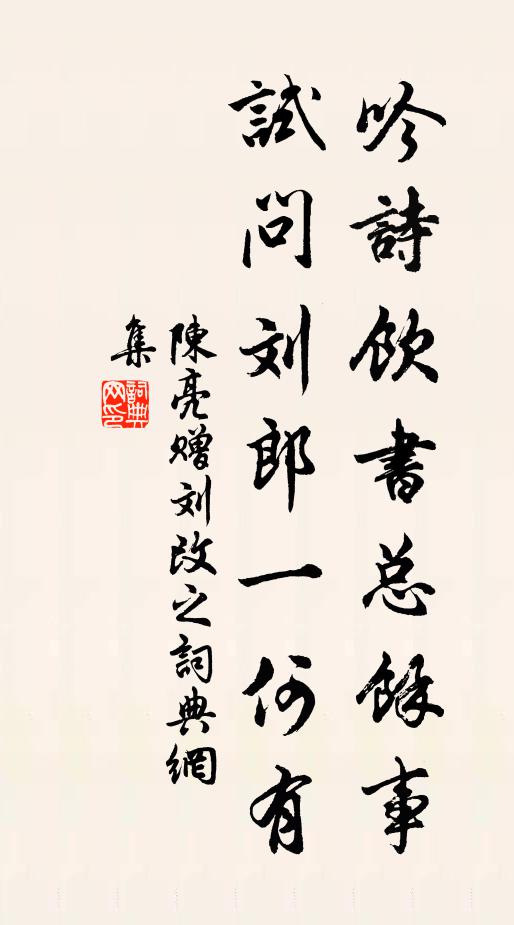 吟詩飲書总餘事
試問刘郎一何有
陳亮赠刘改之詞典網
集
詞典网印